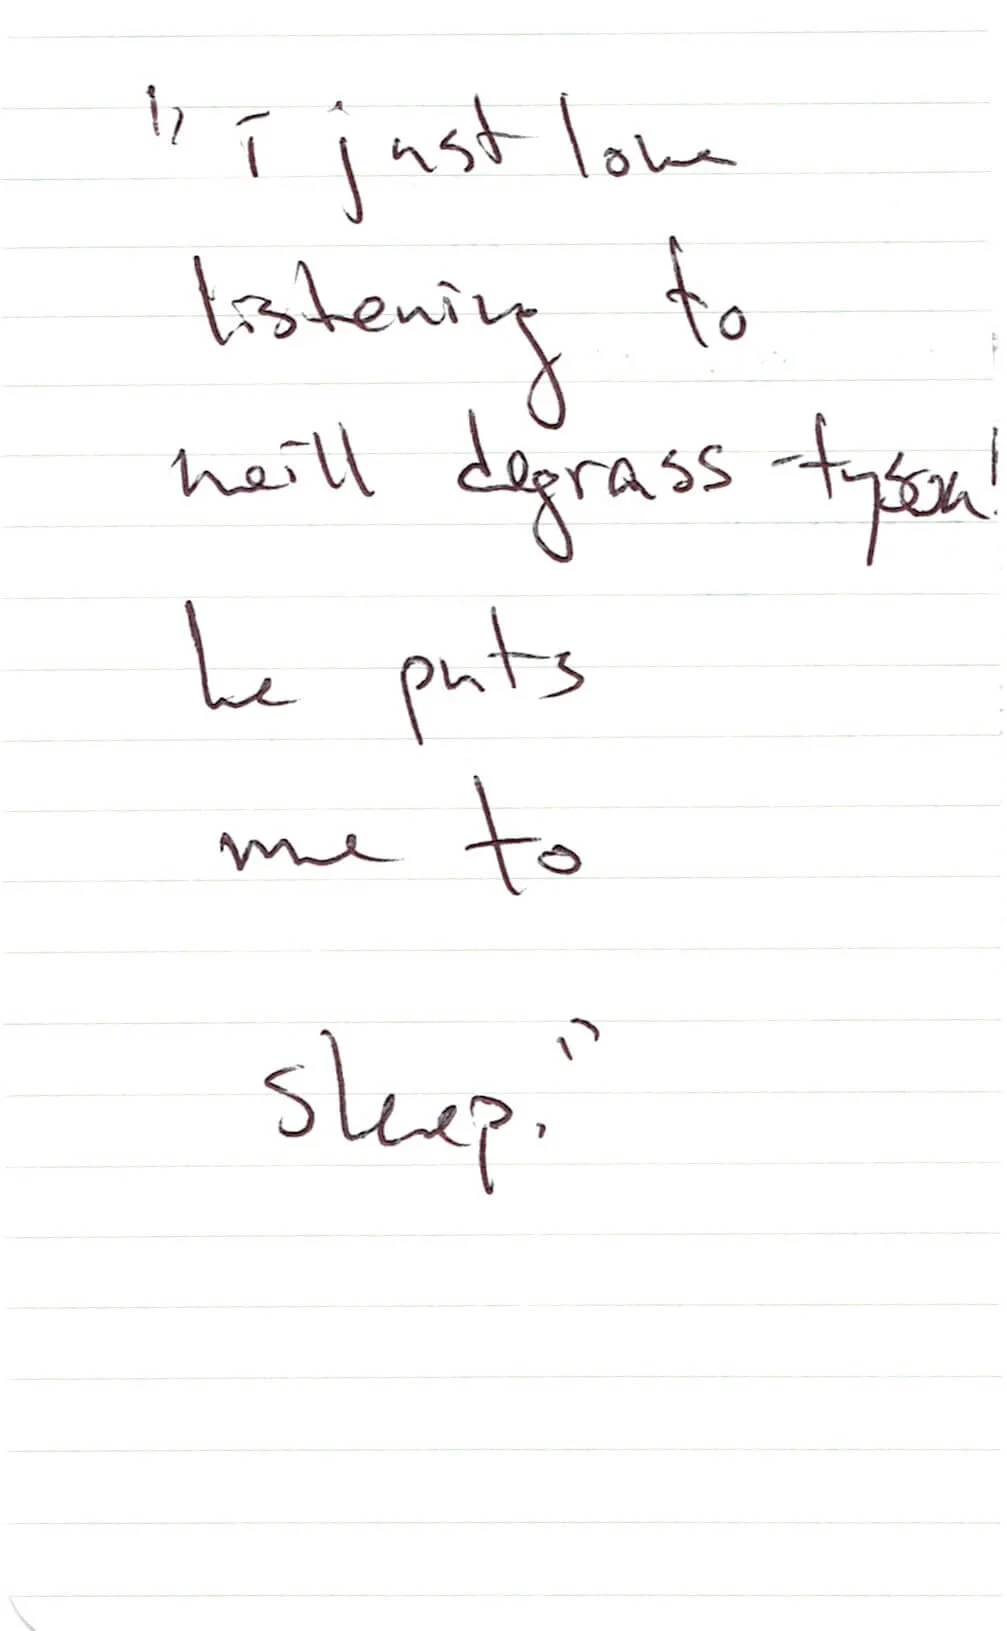 "i just love
listening to
neill degrass-tyson!
he puts
me to
sleep."